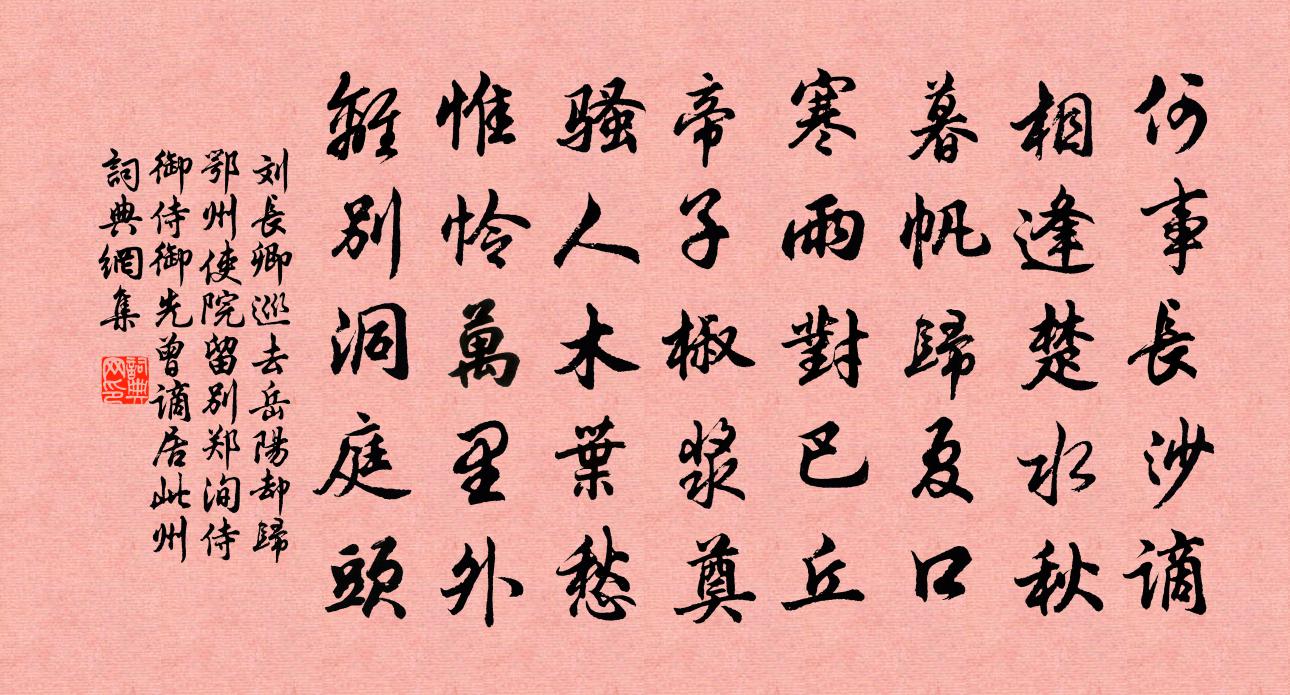 何事長沙謫
相逢楚水秋
暮帆歸夏口
寒雨對巴丘
帝子椒漿奠
騷人木葉愁
惟憐萬里外
離別洞庭頭
刘長卿巡去岳陽却歸
鄂州使院留別郑洵侍
御侍御先曾謫居此州
詞典網集
詞典网印